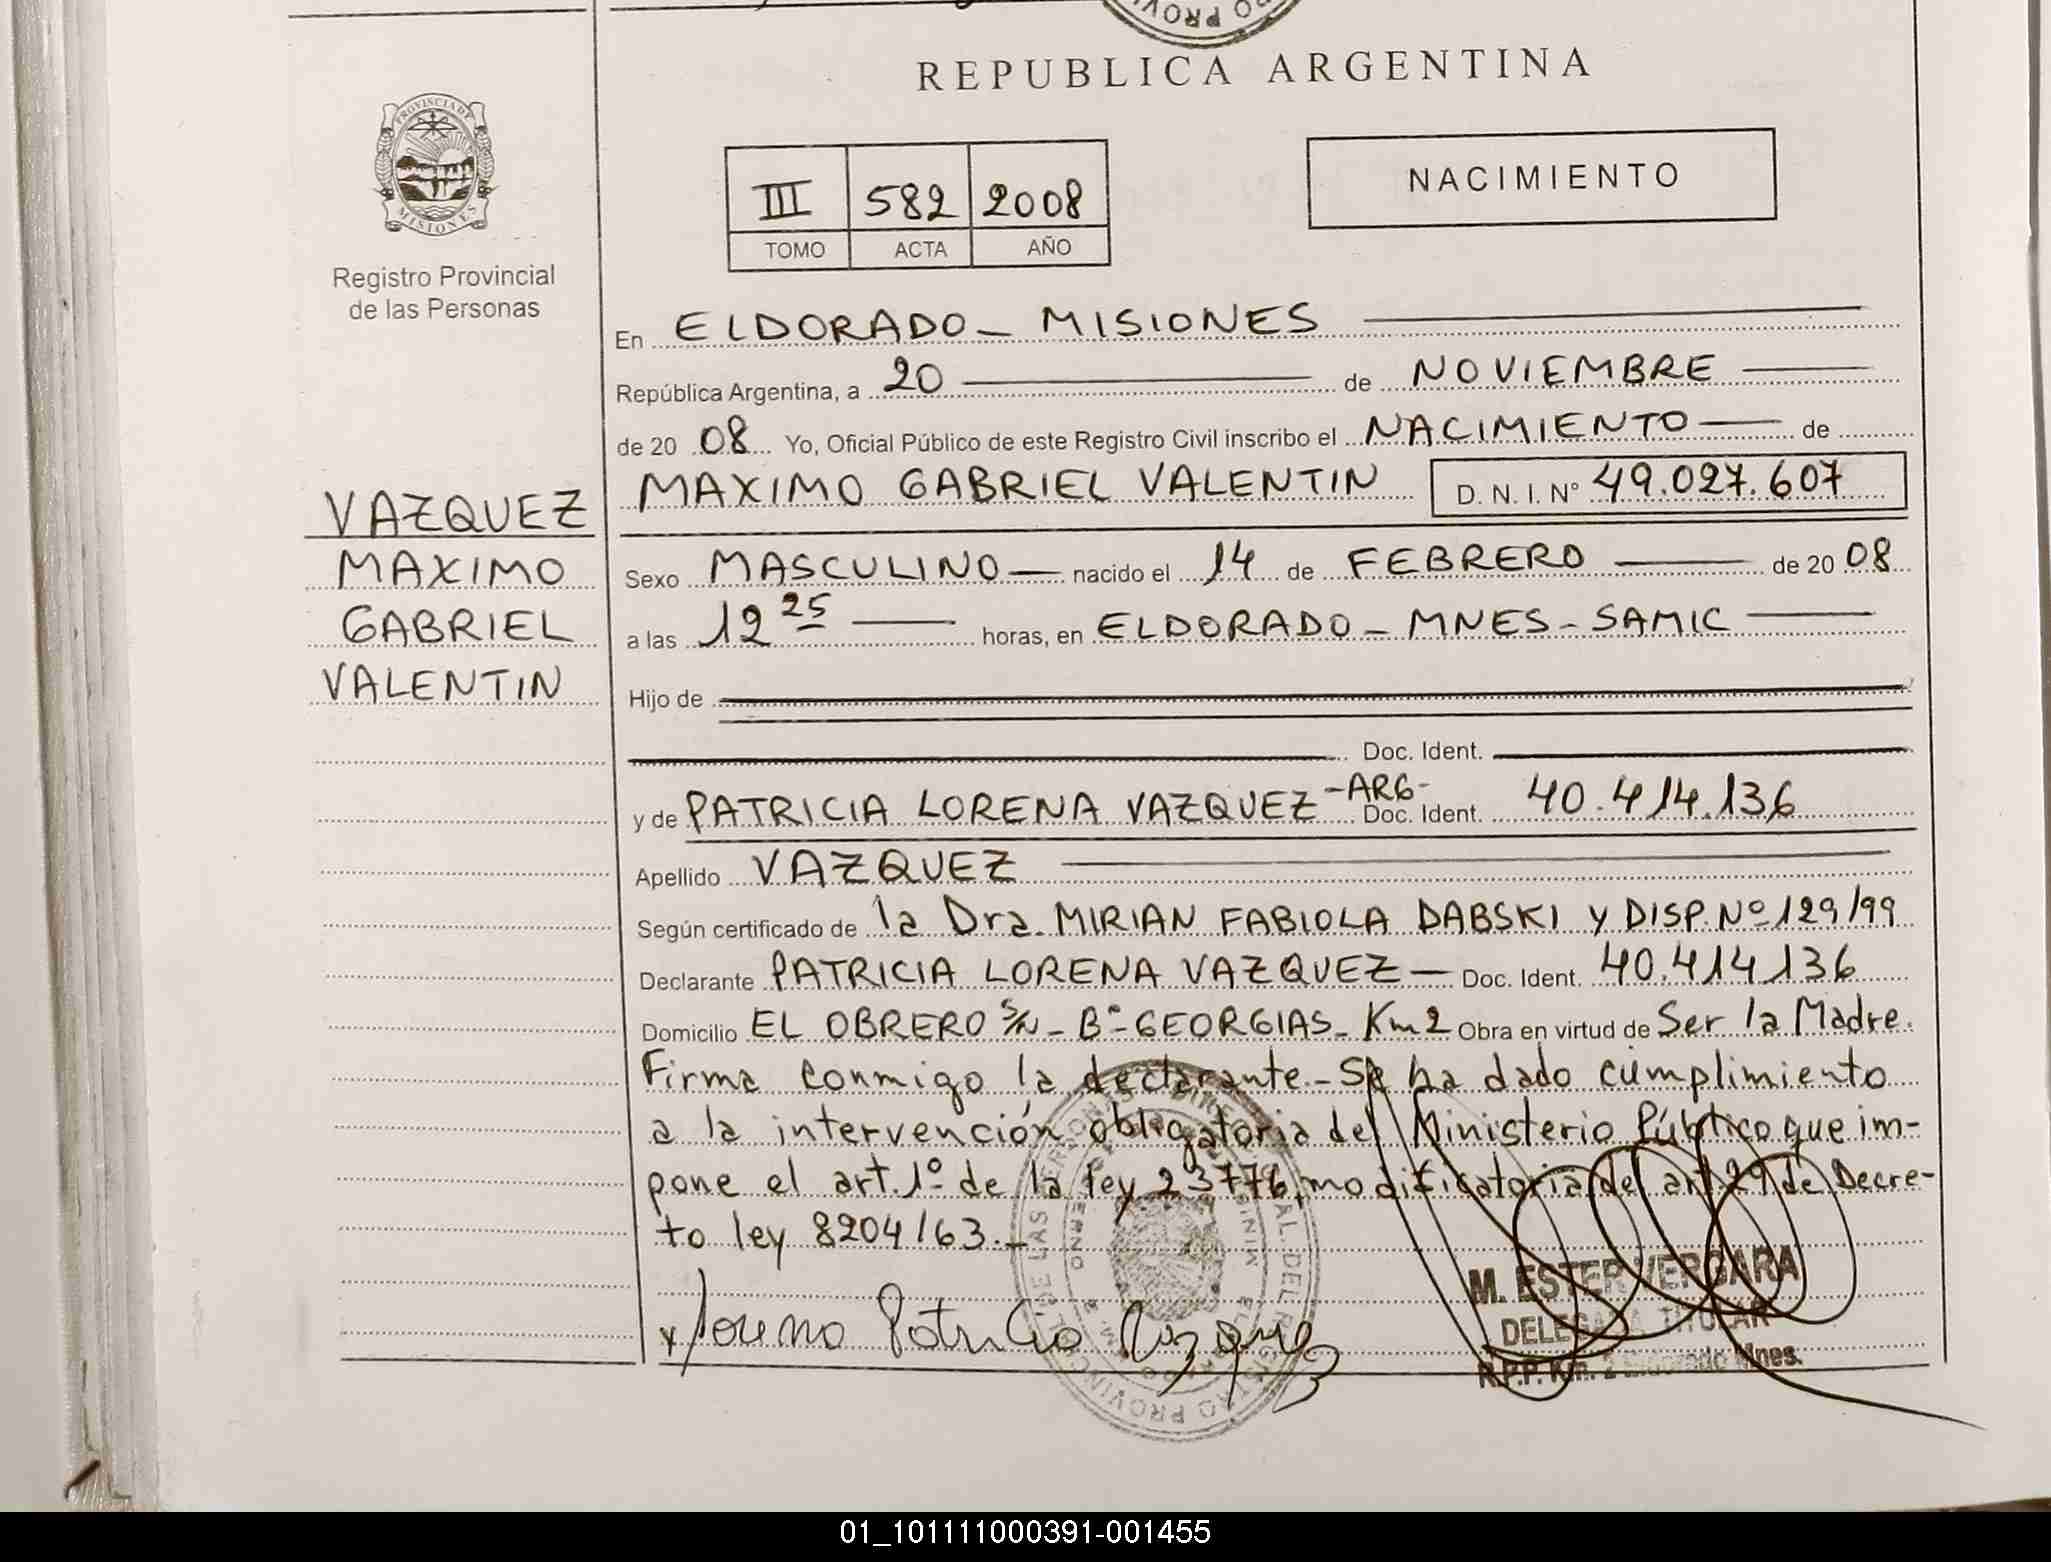 REPUBLICA ARGENTINA
PROVINCIA DE
MISIONES
Registro Provincial
de las Personas
III 582 2008
TOMO ACTA AÑO
NACIMIENTO
VAZQUEZ
MAXIMO
GABRIEL
VALENTIN
En ELDORADO - MISIONES
República Argentina, a 20 de NOVIEMBRE
de 20 08 Yo, Oficial Público de este Registro Civil inscribo el NACIMIENTO de
MAXIMO GABRIEL VALENTIN D. N. I. Nº 49.027.607
Sexo MASCULINO nacido el 14 de FEBRERO de 20 08
a las 12 25 horas, en ELDORADO - MNES - SAMIC
Hijo de
Doc. Ident.
y de PATRICIA LORENA VAZQUEZ -ARG- Doc. Ident. 40.414.136
Apellido VAZQUEZ
Según certificado de la Dra. MIRIAN FABIOLA DABSKI Y DISP. Nº 129/99
Declarante PATRICIA LORENA VAZQUEZ - Doc. Ident. 40.414.136
Domicilio EL OBRERO S/N - Bº - GEORGIAS - Km 2 Obra en virtud de Ser la Madre.
Firma conmigo la declarante.- Se ha dado cumplimiento
a la intervención obligatoria del Ministerio Público que im-
pone el art. 1º de la ley 23776, modificatoria del art 29 de Decre-
to ley 8204/63.-
x Lorena Patricia Vazquez
M. ESTER VERGARA
DELEGADA TITULAR
R.P.P. Km. 2 Eldorado Mnes.
01_101111000391-001455